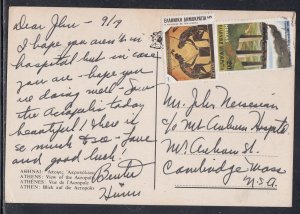 Dear John - 9/9
I hope you aren't in
hospital but in case
you are - hope you
are doing well - Saw
the Acropolis today
beautiful! there is
so much to see - Love
and good luck!
ΑΘΗΝΑΙ: Άποψις Ακροπόλεως
ATHENS: View of the Acropolis
ATHENES: Vue de l'Acropole
ATHEN: Blick auf die Acropolis
ΕΛΛΗΝΙΚΗ ΔΗΜΟΚΡΑΤΙΑ
Mr. John Nersesian
c/o Mt Auburn Hospital
Mt. Auburn St.
Cambridge Mass
U.S.A.